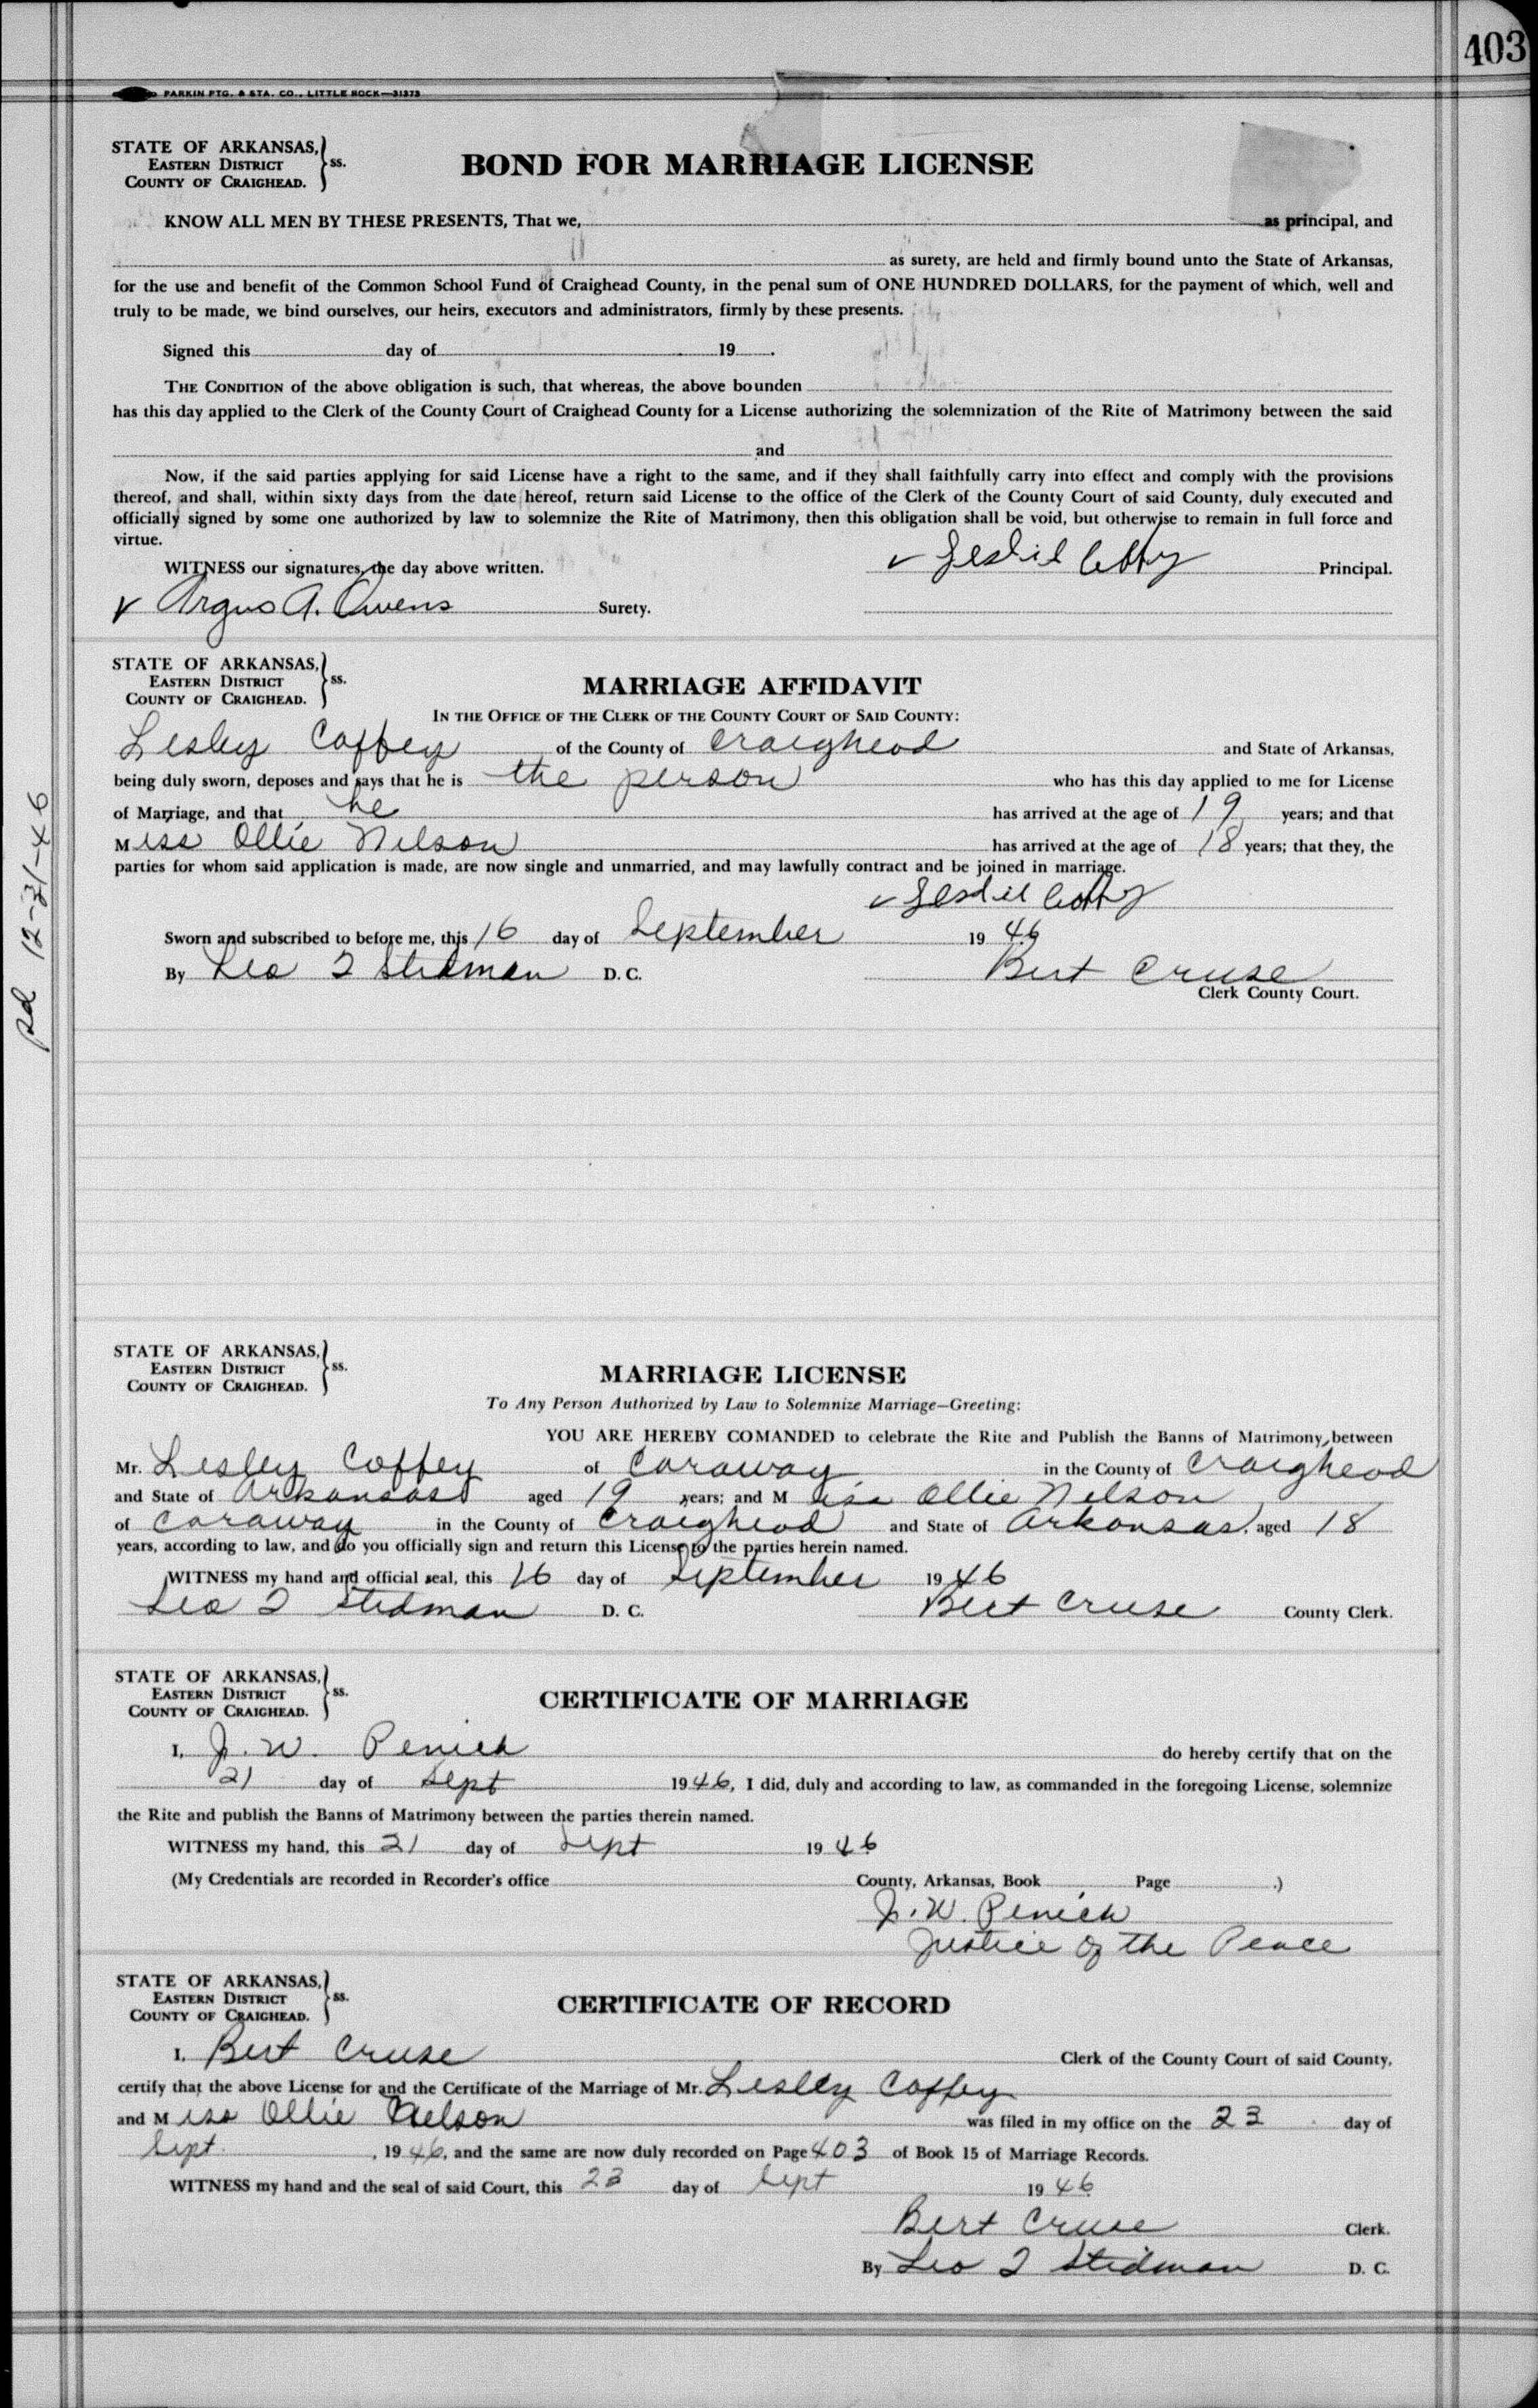 403
PARKIN PTG. & STA. CO., LITTLE ROCK—31373
STATE OF ARKANSAS,
EASTERN DISTRICT
COUNTY OF CRAIGHEAD.
ss.
BOND FOR MARRIAGE LICENSE
KNOW ALL MEN BY THESE PRESENTS, That we, as principal, and
as surety, are held and firmly bound unto the State of Arkansas,
for the use and benefit of the Common School Fund of Craighead County, in the penal sum of ONE HUNDRED DOLLARS, for the payment of which, well and
truly to be made, we bind ourselves, our heirs, executors and administrators, firmly by these presents.
Signed this day of 19 .
THE CONDITION of the above obligation is such, that whereas, the above bounden
has this day applied to the Clerk of the County Court of Craighead County for a License authorizing the solemnization of the Rite of Matrimony between the said
and
Now, if the said parties applying for said License have a right to the same, and if they shall faithfully carry into effect and comply with the provisions
thereof, and shall, within sixty days from the date hereof, return said License to the office of the Clerk of the County Court of said County, duly executed and
officially signed by some one authorized by law to solemnize the Rite of Matrimony, then this obligation shall be void, but otherwise to remain in full force and
virtue.
WITNESS our signatures, the day above written. Principal.
Argus A. Owens Surety.
STATE OF ARKANSAS,
EASTERN DISTRICT
COUNTY OF CRAIGHEAD.
ss.
MARRIAGE AFFIDAVIT
IN THE OFFICE OF THE CLERK OF THE COUNTY COURT OF SAID COUNTY:
Lesley Coffey of the County of Craighead and State of Arkansas,
being duly sworn, deposes and says that he is the person who has this day applied to me for License
of Marriage, and that he has arrived at the age of 19 years; and that
Miss Ollie Nelson has arrived at the age of 18 years; that they, the
parties for whom said application is made, are now single and unmarried, and may lawfully contract and be joined in marriage.
Sworn and subscribed to before me, this 16 day of September 19 46
By Leo Stedman D. C. Bert Cruse
Clerk County Court.
pd 12-31-46
STATE OF ARKANSAS,
EASTERN DISTRICT
COUNTY OF CRAIGHEAD.
ss.
MARRIAGE LICENSE
To Any Person Authorized by Law to Solemnize Marriage—Greeting:
YOU ARE HEREBY COMANDED to celebrate the Rite and Publish the Banns of Matrimony, between
Mr. Lesley Coffey of Caraway in the County of Craighead
and State of Arkansas aged 19 years; and Miss Ollie Nelson
of Caraway in the County of Craighead and State of Arkansas, aged 18
years, according to law, and do you officially sign and return this License to the parties herein named.
WITNESS my hand and official seal, this 16 day of September 1946
Leo Stedman D. C. Bert Cruse County Clerk.
STATE OF ARKANSAS,
EASTERN DISTRICT
COUNTY OF CRAIGHEAD.
ss.
CERTIFICATE OF MARRIAGE
I, J. W. Penick do hereby certify that on the
21 day of Sept 1946, I did, duly and according to law, as commanded in the foregoing License, solemnize
the Rite and publish the Banns of Matrimony between the parties therein named.
WITNESS my hand, this 21 day of Sept 19 46
(My Credentials are recorded in Recorder's office County, Arkansas, Book Page .)
J. W. Penick
Justice of the Peace
STATE OF ARKANSAS,
EASTERN DISTRICT
COUNTY OF CRAIGHEAD.
ss.
CERTIFICATE OF RECORD
I, Bert Cruse Clerk of the County Court of said County,
certify that the above License for and the Certificate of the Marriage of Mr. Lesley Coffey
and Miss Ollie Nelson was filed in my office on the 23 day of
Sept , 1946, and the same are now duly recorded on Page 403 of Book 15 of Marriage Records.
WITNESS my hand and the seal of said Court, this 23 day of Sept 19 46
Bert Cruse Clerk.
By Leo Stedman D. C.